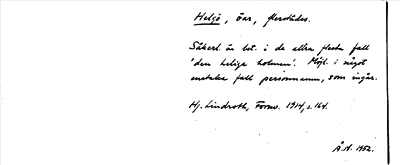 Helgö, öar, flerstädes.
Säkert är bet. i de allra flesta fall
'den heliga holmen'. Möjl. i något
enstaka fall personnamn, som ingår.
Hj. Lindroth, Fornv. 1914, s. 164.
Å.N. 1952.